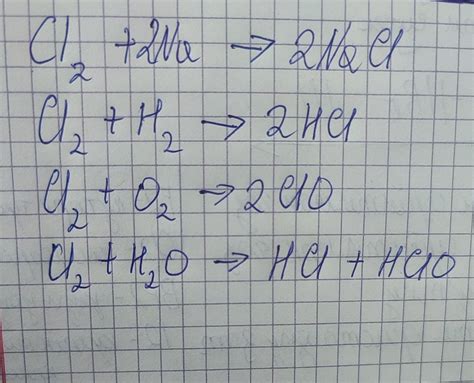 Cl₂ + 2Na → 2NaCl
Cl₂ + H₂ → 2HCl
Cl₂ + O₂ → 2ClO
Cl₂ + H₂O → HCl + HClO